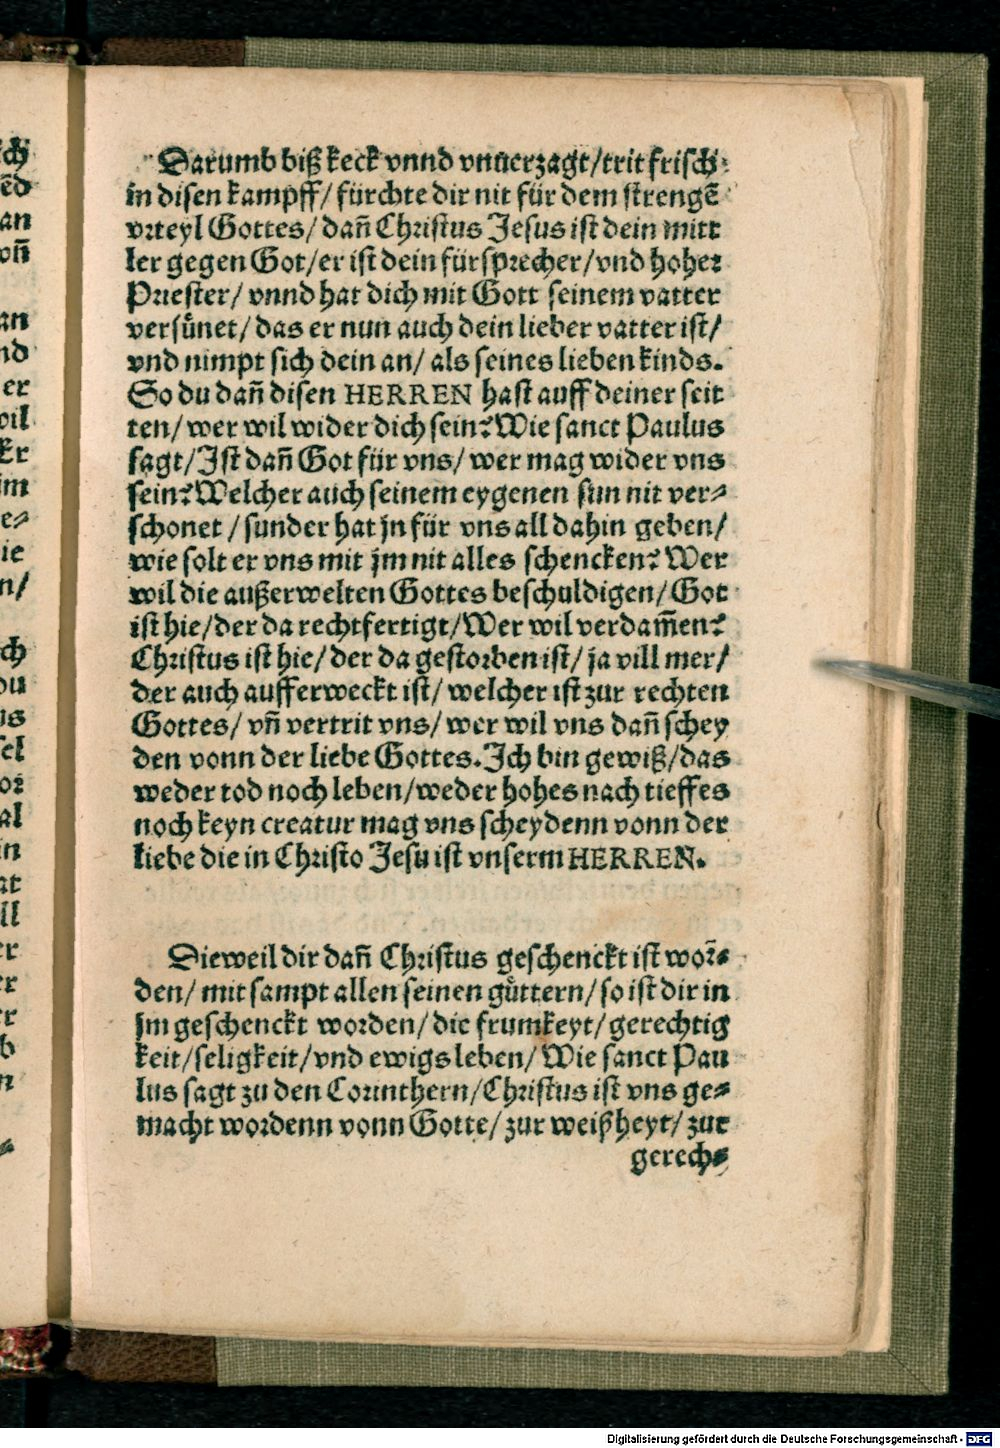 Darumb biß keck vnnd vnuerzagt/trit frisch
in disen kampff/ fürchte dir nit für dem strengẽ
vrteyl Gottes/ dañ Christus Jesus ist dein mitt
ler gegen Got/er ist dein fürsprecher/vnd hoher
Priester/ vnnd hat dich mit Gott seinem vatter
versünet/das er nun auch dein lieber vatter ist/
vnd nimpt sich dein an/ als seines lieben kinds.
So du dañ disen HERREN hast auff deiner seit
ten/wer wil wider dich sein? Wie sanct Paulus
sagt/Ist dañ Got für vns/ wer mag wider vns
sein? Welcher auch seinem eygenen sun nit ver⸗
schonet /sunder hat jn für vns all dahin geben/
wie solt er vns mit jm nit alles schencken? Wer
wil die außerwelten Gottes beschuldigen/ Got
ist hie/der da rechtfertigt/Wer wil verdam̃en?
Christus ist hie/ der da gestorben ist/ ja vill mer/
der auch aufferweckt ist/ welcher ist zur rechten
Gottes/ vñ vertrit vns/ wer wil vns dañ schey
den vonn der liebe Gottes. Ich bin gewiß/das
weder tod noch leben/weder hohes nach tieffes
noch keyn creatur mag vns scheydenn vonn der
liebe die in Christo Jesu ist vnserm HERREN.
Dieweil dir dañ Christus geschenckt ist wor⸗
den/ mit sampt allen seinen güttern/so ist dir in
jm geschenckt worden/die frumkeyt/gerechtig
keit/seligkeit/vnd ewigs leben/ Wie sanct Pau
lus sagt zu den Corinthern/Christus ist vns ge⸗
macht wordenn vonn Gotte/ zur weißheyt/ zur
gerech⸗
Digitalisierung gefördert durch die Deutsche Forschungsgemeinschaft - DFG